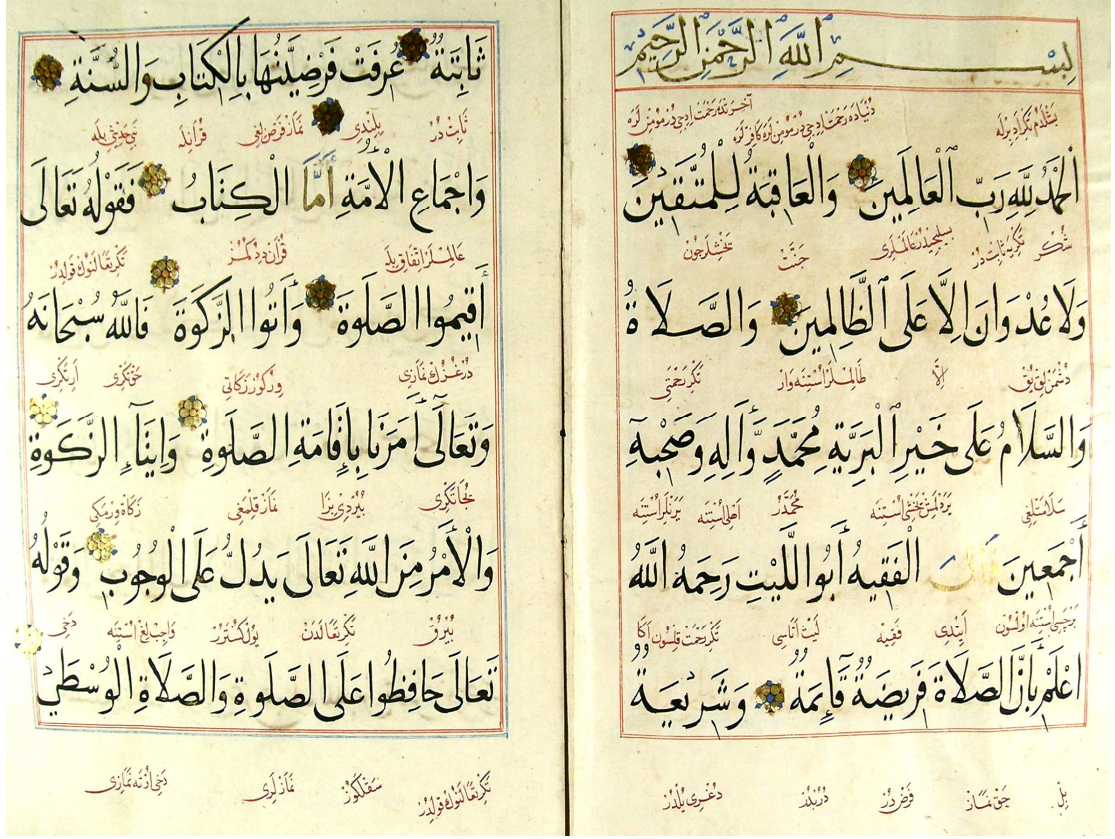 بِسْمِ اللّٰهِ الرَّحْمٰنِ الرَّحِيمِ
اَلْحَمْدُ لِلّٰهِ رَبِّ الْعَالَمِينَ وَالْعَاقِبَةُ لِلْمُتَّقِينَ
شكر تكريه ثابت در عالملرى جنت
وَلَا عُدْوَانَ اِلَّا عَلَى الظَّالِمِينَ وَالصَّلَاةُ
دشمنلق يق الّا ظالملر استنه وار تكرى رحمتى
وَالسَّلَامُ عَلَى خَيْرِ الْبَرِيَّةِ مُحَمَّدٍ وَّاٰلِهِ وَصَحْبِهِ
سلامتلغى يردلمش يخشى استنه محمّد در اهلى استنه يرنلر استنه
أَجْمَعِينَ قَالَ الْفَقِيهُ أَبُو اللَّيْثِ رَحِمَهُ اللّٰهُ
ايتدى فقيه ليث اتاسى تكرى رحمت قلسون اكا
اعْلَمْ بِأَنَّ الصَّلَاةَ فَرِيضَةٌ قَآئِمَةٌ وَشَرِيعَةٌ
بل حق نماز فرض در دررلدر دغرى يلدر
ثَابِتَةٌ عُرِفَتْ فَرْضِيَّتُهَا بِالْكِتَابِ وَالسُّنَّةِ
ثابت در بلندى نماز فرض لغى قرانله نبى حديثى يله
وَاِجْمَاعِ الْاُمَّةِ أَمَّا الْكِتَابُ فَقَوْلُهُ تَعَالَى
عالملر اتفاق يله قران ددكمز تكرى تعالنوك قولدر
أَقِيمُوا الصَّلٰوةَ وَاٰتُوا الزَّكٰوةَ فَاللّٰهُ سُبْحَانَهُ
درغزك نمازى وركوز زكاتى حق تكرى ار تكرى
وَتَعَالَى أَمَرَنَا بِاِقَامَةِ الصَّلٰوةِ وَاِيتَآءِ الزَّكٰوةِ
يجا تكرى بيردى بزا نماز قلمغى زكاة ورمكى
وَالْأَمْرُ مِنَ اللّٰهِ تَعَالَى يَدُلُّ عَلَى الْوُجُوبِ وَقَوْلُهُ
بيرق تكرى تعالدن يول كستررر واجبلغ استنه دخى
تَعَالَى حَافِظُوا عَلَى الصَّلَوةِ وَالصَّلَاةِ الْوُسْطَى
تكرى تعالنوك قولدر سقلكوز نمازلرى دخى ارته نمازى